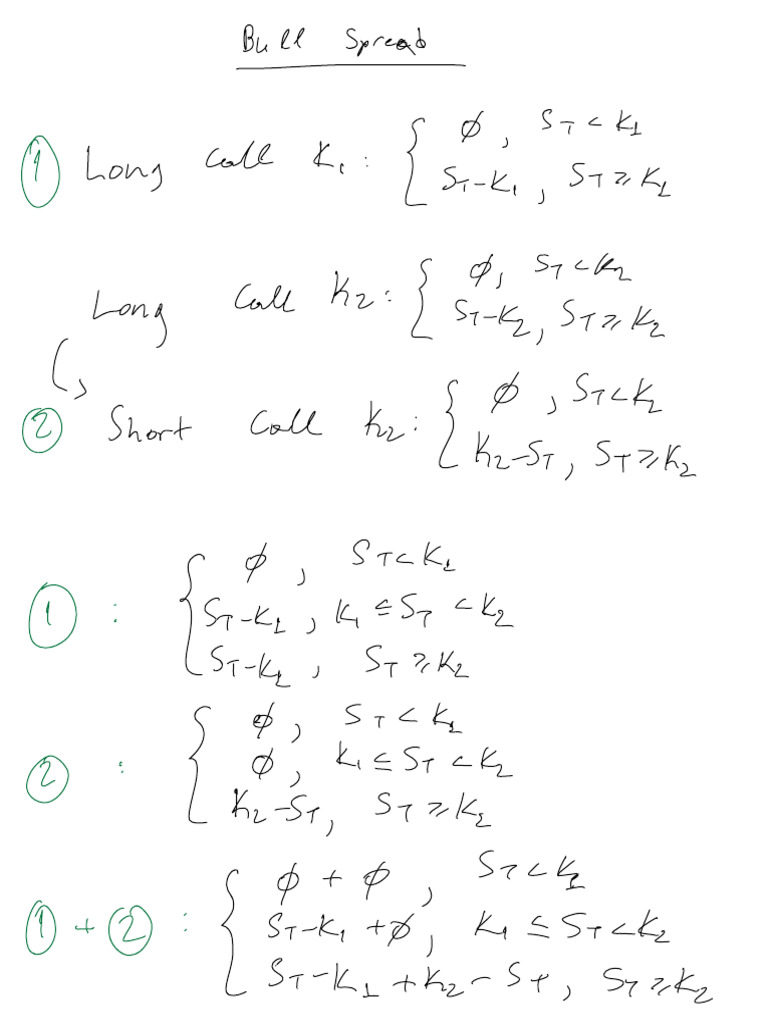 Bull Spread
① Long Call K₁: { ∅, S_T < K₁
S_T-K₁, S_T ≥ K₁
Long Call K₂: { ∅, S_T < K₂
S_T-K₂, S_T ≥ K₂
② Short Call K₂: { ∅, S_T < K₂
K₂-S_T, S_T ≥ K₂
① : { ∅, S_T < K₁
S_T-K₁, K₁ ≤ S_T < K₂
S_T-K₁, S_T ≥ K₂
② : { ∅, S_T < K₁
∅, K₁ ≤ S_T < K₂
K₂-S_T, S_T ≥ K₂
① + ② : { ∅ + ∅, S_T < K₁
S_T-K₁ + ∅, K₁ ≤ S_T < K₂
S_T-K₁ + K₂ - S_T, S_T ≥ K₂